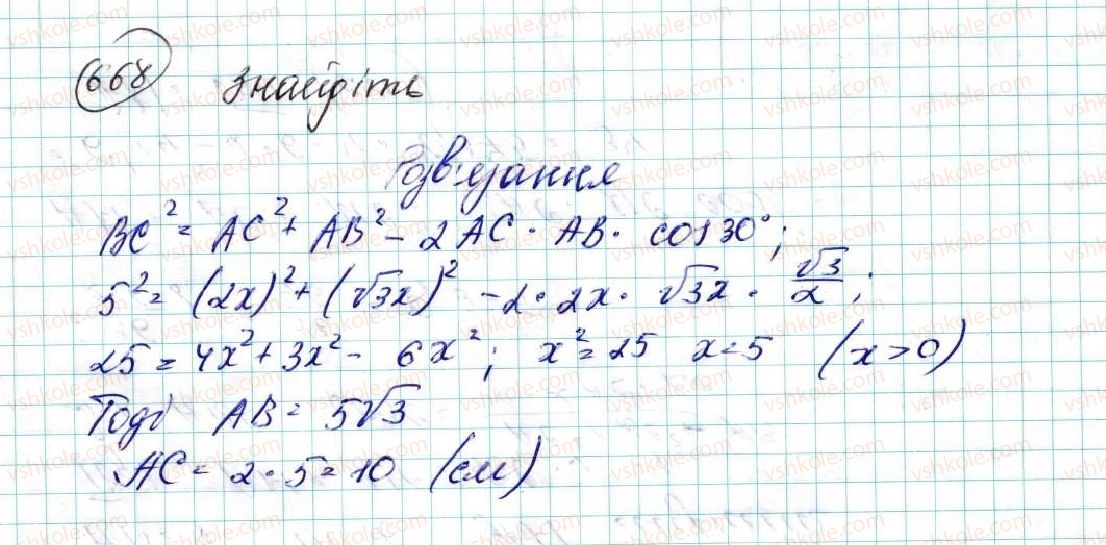 668 Знайдіть
Розв'язання
BC² = AC² + AB² - 2AC · AB · cos30°;
5² = (2x)² + (√3x)² - 2 · 2x · √3x · √3/2;
25 = 4x² + 3x² - 6x²; x² = 25 x = 5 (x > 0)
Тоді AB = 5√3
AC = 2 · 5 = 10 (см)